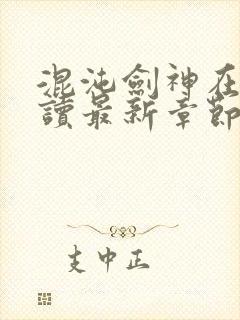 混沌劍神在
讀最新章節
支中正